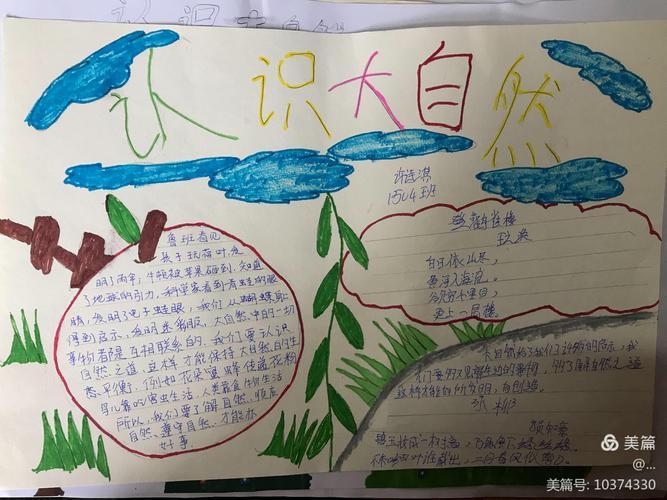 认识大自然
许连淇
1504班
鲁班看见
孩子玩荷叶,发
明了雨伞,牛顿被苹果砸到,知道
了地球的引力,科学家看到青蛙的眼
睛,发明了电子蛙眼,我们从蝴蝶身上
得到启示,发明迷彩服,大自然中的一切
事物都是互相联系的,我们要认识
自然之道,这样才能保持大自然的生
态平衡,例如花朵要蜂传遍花粉
鸟儿靠吃害虫生活,人类靠食物生活
所以,我们要了解自然,顺应
自然,遵守自然,才能办
好事.
登鹳雀楼
白日依山尽,
黄河入海流。
欲穷千里目,
更上一层楼
大自然给了我们许多的启示,我
们要
咏柳
碧玉妆成一树高,万条垂下绿丝绦
不知细叶谁裁出,二月春风似剪刀。
美篇
@...
美篇号: 10374330